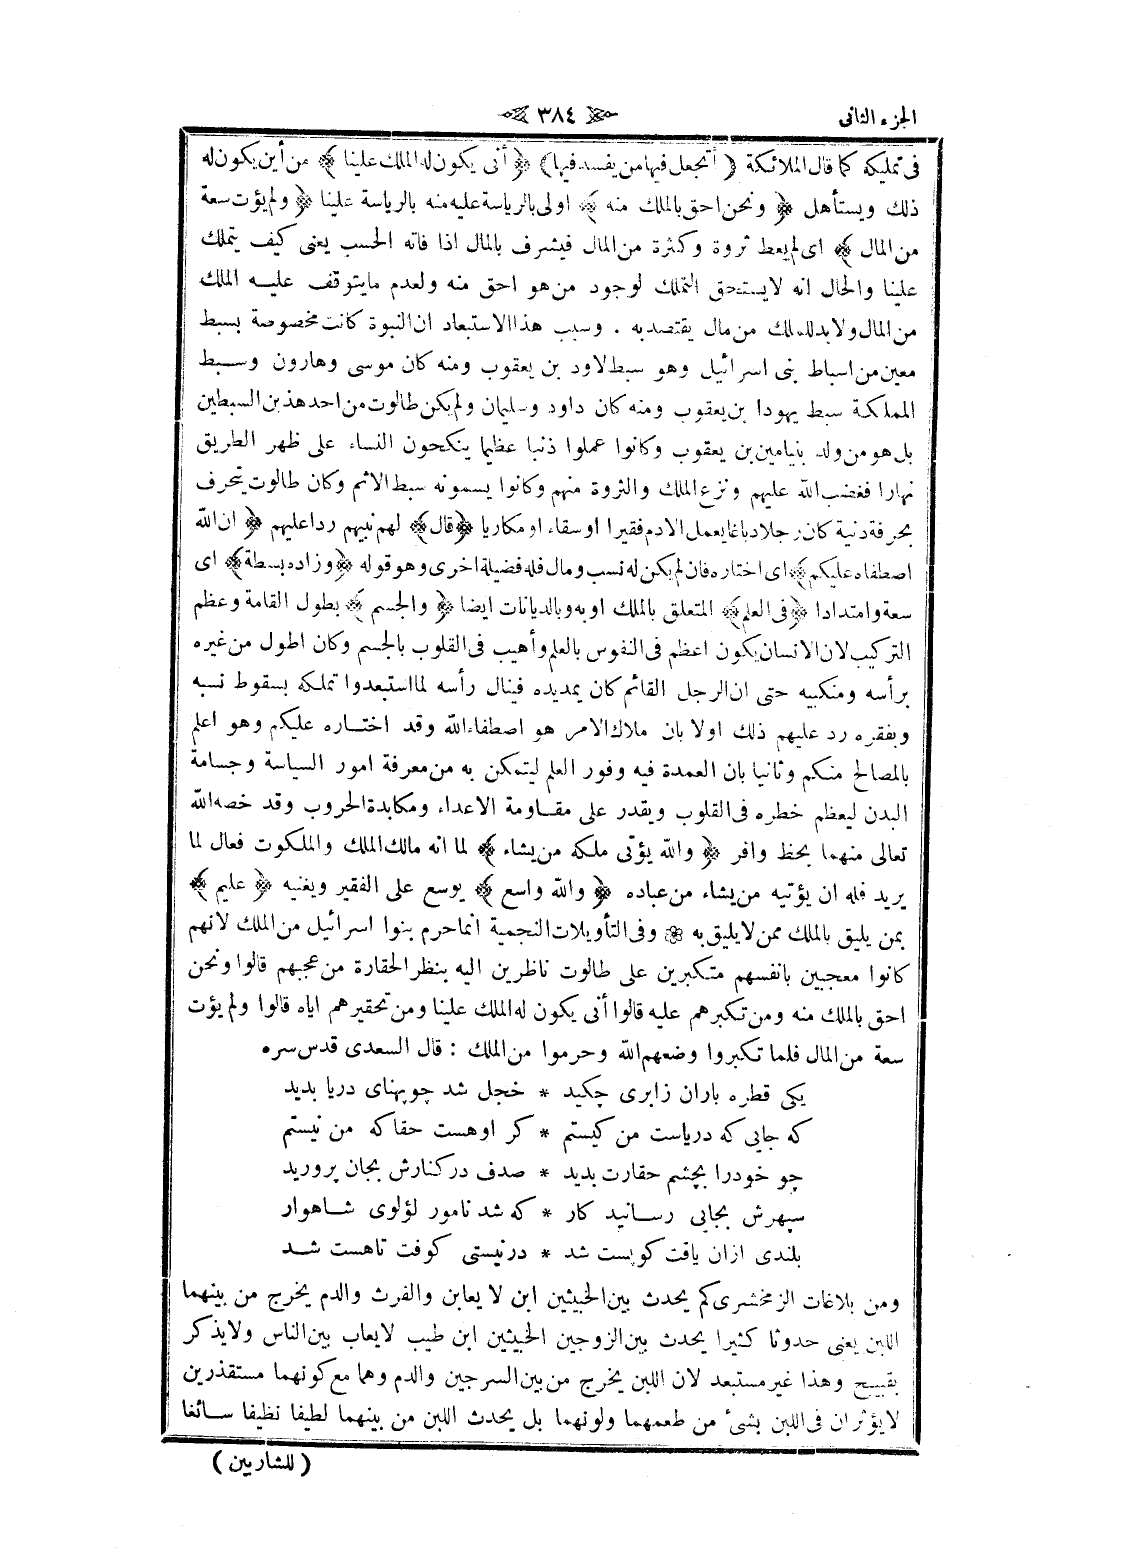 الجزء الثانى
٣٨٤
فى تمليكه كما قال الملائكة ( أتجعل فيها من يفسد فيها ) ﴿ أنى يكون له الملك علينا ﴾ من أين يكون له
ذلك ويستأهل ﴿ ونحن احق بالملك منه ﴾ اولى بالرياسة عليه منه بالرياسة علينا ﴿ ولم يؤت سعة
من المال ﴾ اى لم يعط ثروة وكثرة من المال فيشرف بالمال اذا فاته الحسب يعنى كيف يتملك
علينا والحال انه لا يستحق التملك لوجود من هو احق منه ولعدم ما يتوقف عليه الملك
من المال ولا بد للملك من مال يقتصد به . وسبب هذا الاستبعاد ان النبوة كانت مخصوصة بسبط
معين من اسباط بنى اسرائيل وهو سبط لاود بن يعقوب ومنه كان موسى وهارون وسبط
المملكة سبط يهودا بن يعقوب ومنه كان داود وسليمان ولم يكن طالوت من احد هذين السبطين
بل هو من ولد بنيامين بن يعقوب وكانوا عملوا ذنبا عظيما ينكحون النساء على ظهر الطريق
نهارا فغضب الله عليهم ونزع الملك والثروة منهم وكانوا يسمونه سبط الاثم وكان طالوت يتحرف
بحرفة دنية كان رجلا دباغا يعمل الادم فقيرا او سقاء او مكاريا ﴿ قال ﴾ لهم نبيهم ردا عليهم ﴿ ان الله
اصطفاه عليكم ﴾ اى اختاره فان لم يكن له نسب ومال فله فضيلة اخرى وهو قوله ﴿ وزاده بسطة ﴾ اى
سعة وامتدادا ﴿ فى العلم ﴾ المتعلق بالملك او به وبالديانات ايضا ﴿ والجسم ﴾ بطول القامة وعظم
التركيب لان الانسان يكون اعظم فى النفوس بالعلم وأهيب فى القلوب بالجسم وكان اطول من غيره
برأسه ومنكبيه حتى ان الرجل القائم كان يمد يده فينال رأسه لما استبعدوا تملكه بسقوط نسبه
وبفقره رد عليهم ذلك اولا بان ملاك الامر هو اصطفاء الله وقد اختاره عليكم وهو اعلم
بالمصالح منكم وثانيا بان العمدة فيه وفور العلم ليتمكن به من معرفة امور السياسة وجسامة
البدن ليعظم خطره فى القلوب ويقدر على مقاومة الاعداء ومكابدة الحروب وقد خصه الله
تعالى منهما بحظ وافر ﴿ والله يؤتى ملكه من يشاء ﴾ لما انه مالك الملك والملكوت فعال لما
يريد فله ان يؤتيه من يشاء من عباده ﴿ والله واسع ﴾ يوسع على الفقير ويغنيه ﴿ عليم ﴾
بمن يليق بالملك ممن لا يليق به ❁ وفى التأويلات النجمية انما حرم بنوا اسرائيل من الملك لانهم
كانوا معجبين بانفسهم متكبرين على طالوت ناظرين اليه بنظر الحقارة من عجبهم قالوا ونحن
احق بالملك منه ومن تكبرهم عليه قالوا أنى يكون له الملك علينا ومن تحقيرهم اياه قالوا ولم يؤت
سعة من المال فلما تكبروا وضعهم الله وحرموا من الملك : قال السعدى قدس سره
يكى قطره باران زابرى چكيد * خجل شد چو پهناى دريا بديد
كه جايى كه درياست من كيستم * كر او هست حقا كه من نيستم
چو خودرا بچشم حقارت بديد * صدف در كنارش بجان پروريد
سپهرش بجايى رسانيد كار * كه شد نامور لؤلوى شاهوار
بلندى ازان يافت كو پست شد * در نيستى كوفت تا هست شد
ومن بلاغات الزمخشرى كم يحدث بين الخبيثين ابن لا يعابن والفرث والدم يخرج من بينهما
اللبن يعنى حدوثا كثيرا يحدث بين الزوجين الخبيثين ابن طيب لا يعاب بين الناس ولا يذكر
بقبيح وهذا غير مستبعد لان اللبن يخرج من بين السرجين والدم وهما مع كونهما مستقذرين
لا يؤثران فى اللبن بشئ من طعمهما ولونهما بل يحدث اللبن من بينهما لطيفا نظيفا سائغا
( للشاربين )